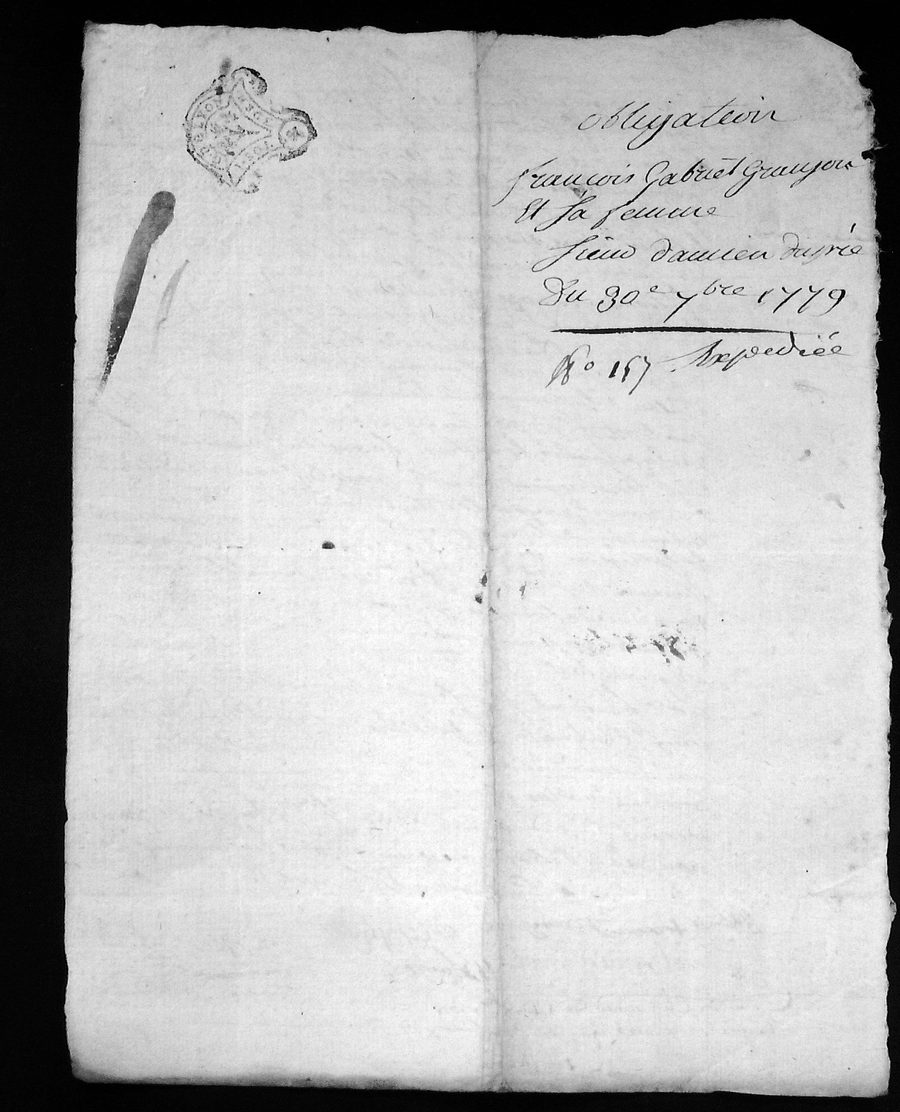 obligation
françois Gabriel Granjon
Et sa femme
sieur damien duprée
Du 30e 7bre 1779
No 157 Expediée